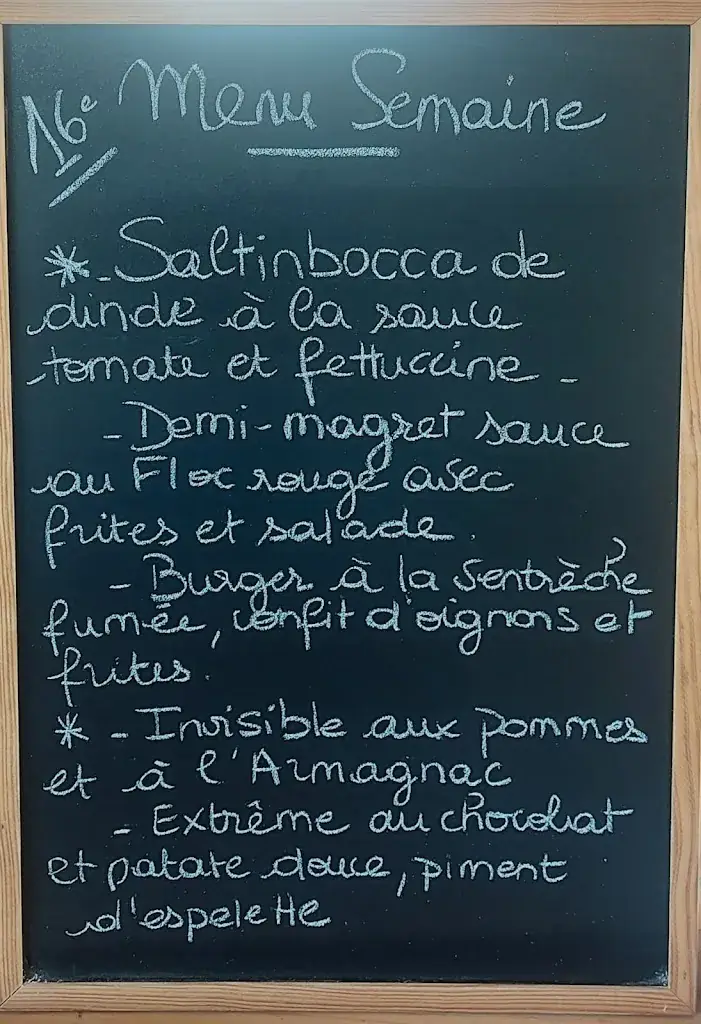 16e Menu Semaine
* - Saltinbocca de
dinde à la sauce
tomate et fettuccine -
- Demi-magret sauce
au Floc rouge avec
frites et salade.
- Burger à la ventrèche
fumée, confit d'oignons et
frites.
* - Invisible aux pommes
et à l'Armagnac
- Extrême au chocolat
et patate douce, piment
d'espelette